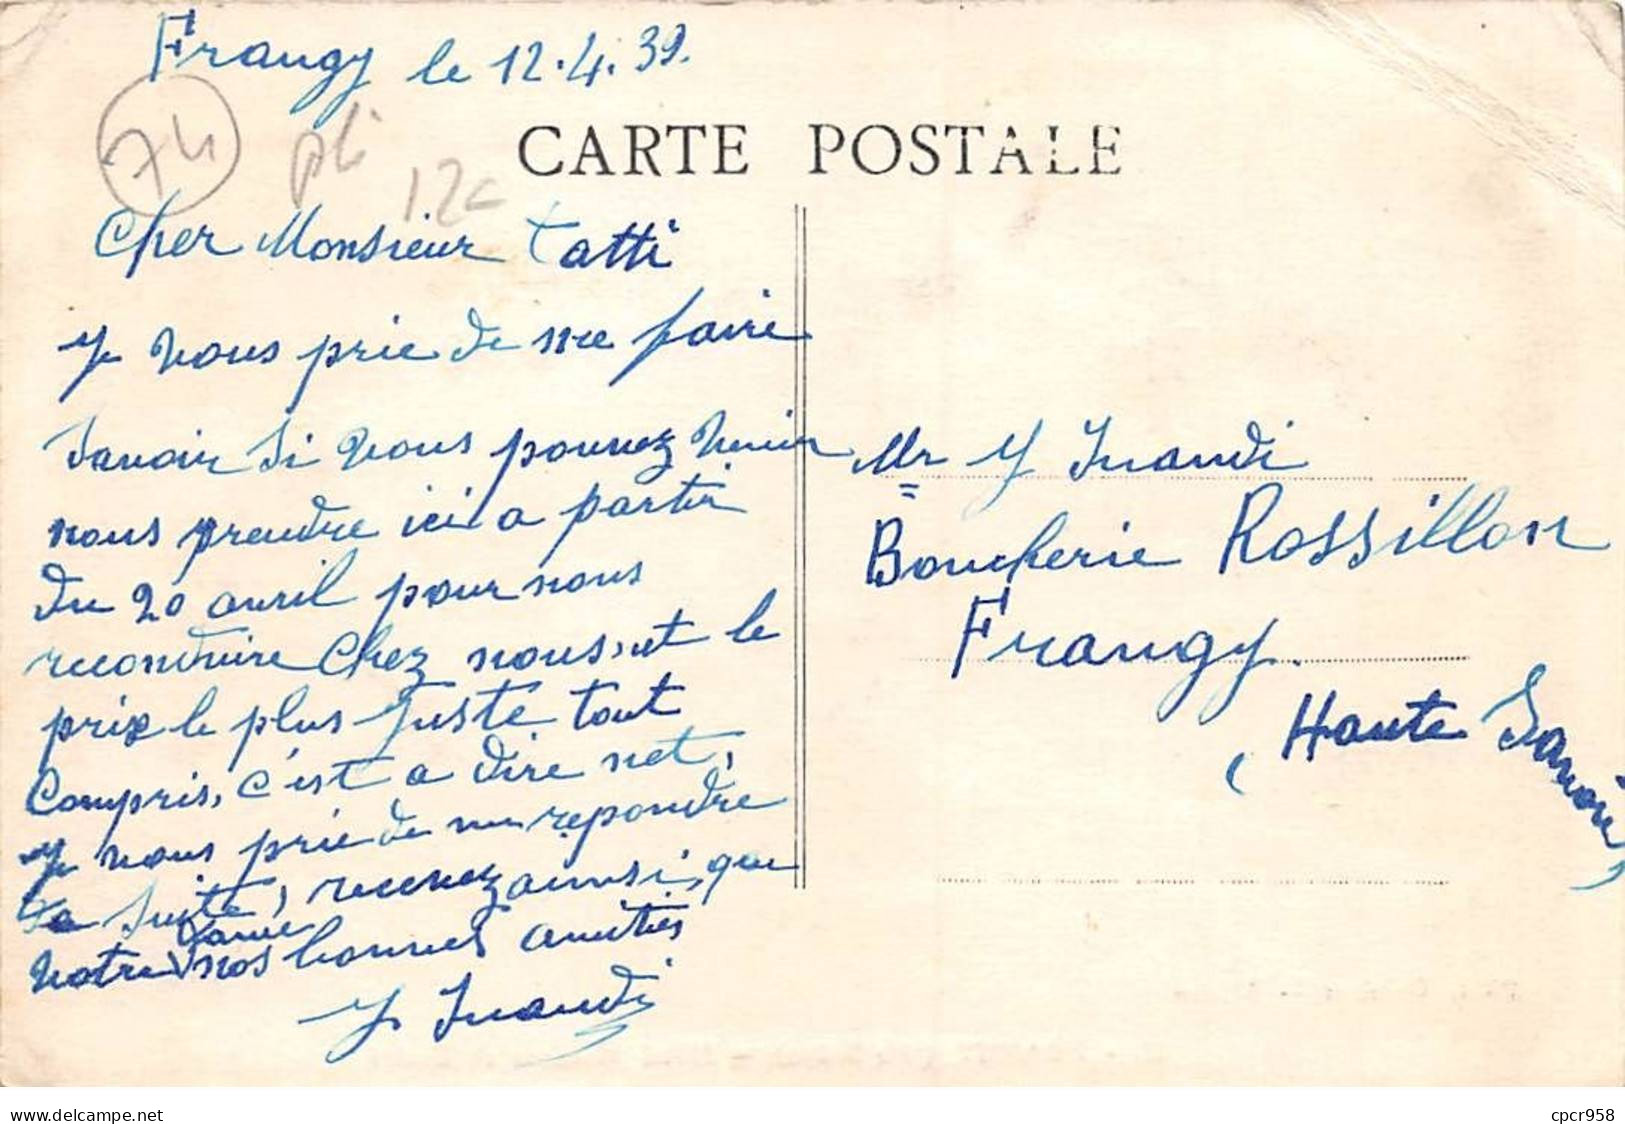 Frangy le 12.4.39.
74
pli
12c
CARTE POSTALE
Cher Monsieur Tatti
Je vous prie de me faire
Savoir Si vous pouvez venir
nous prendre ici a partir
du 20 avril pour nous
reconduire Chez nous, et le
prix le plus Juste tout
Compris, c'est a dire net,
Je vous prie de me repondre
de Suite, recevez ainsi, que
Dame
votre nos bonnes amitiés
J. Inaudi
Mr J Inaudi
Boucherie Rossillon
Frangy.
(Haute Savoie)
delcampe.net
cpcr958